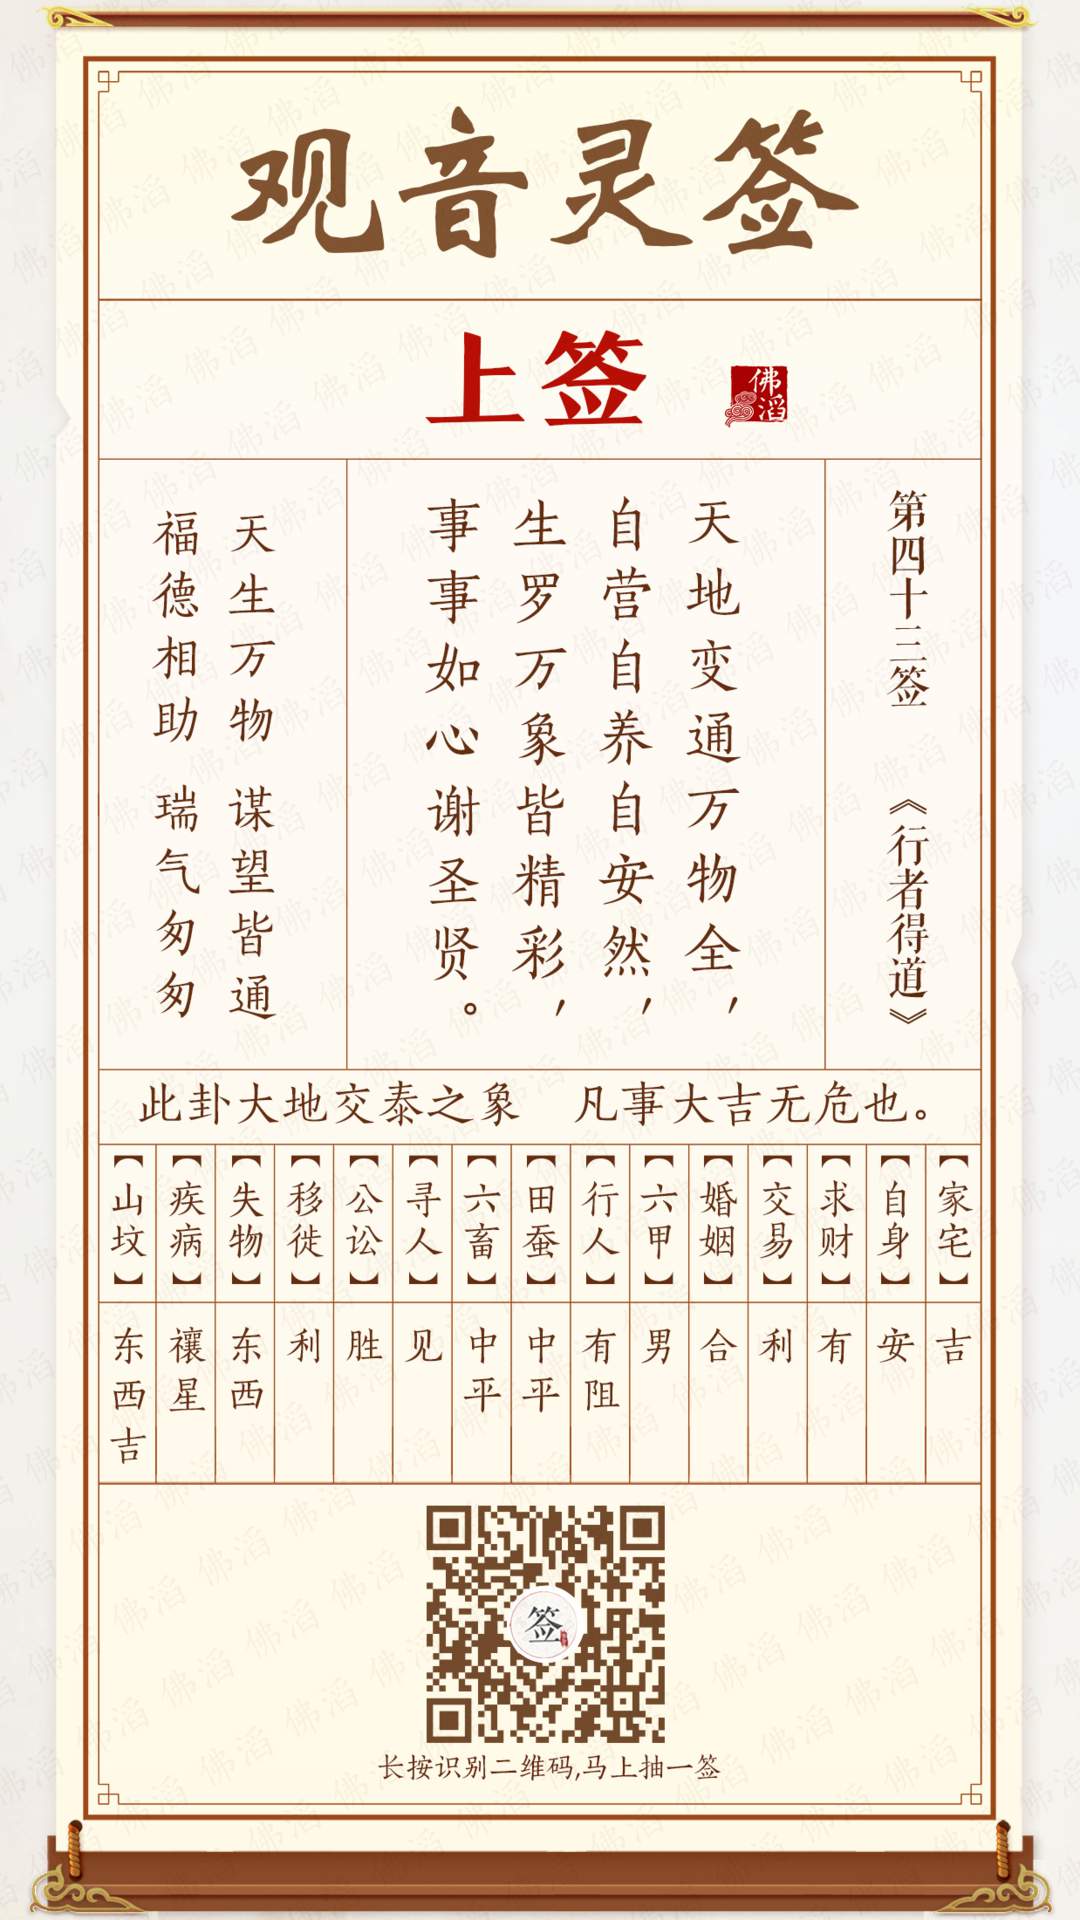 观音灵签
上签
佛滔
第四十三签 《行者得道》
天地变通万物全，
自营自养自安然，
生罗万象皆精彩，
事事如心谢圣贤。
天生万物 谋望皆通
福德相助 瑞气匆匆
此卦大地交泰之象 凡事大吉无危也。
【家宅】吉
【自身】安
【求财】有
【交易】利
【婚姻】合
【六甲】男
【行人】有阻
【田蚕】中平
【六畜】中平
【寻人】见
【公讼】胜
【移徙】利
【失物】东西
【疾病】禳星
【山坟】东西吉
签
长按识别二维码,马上抽一签